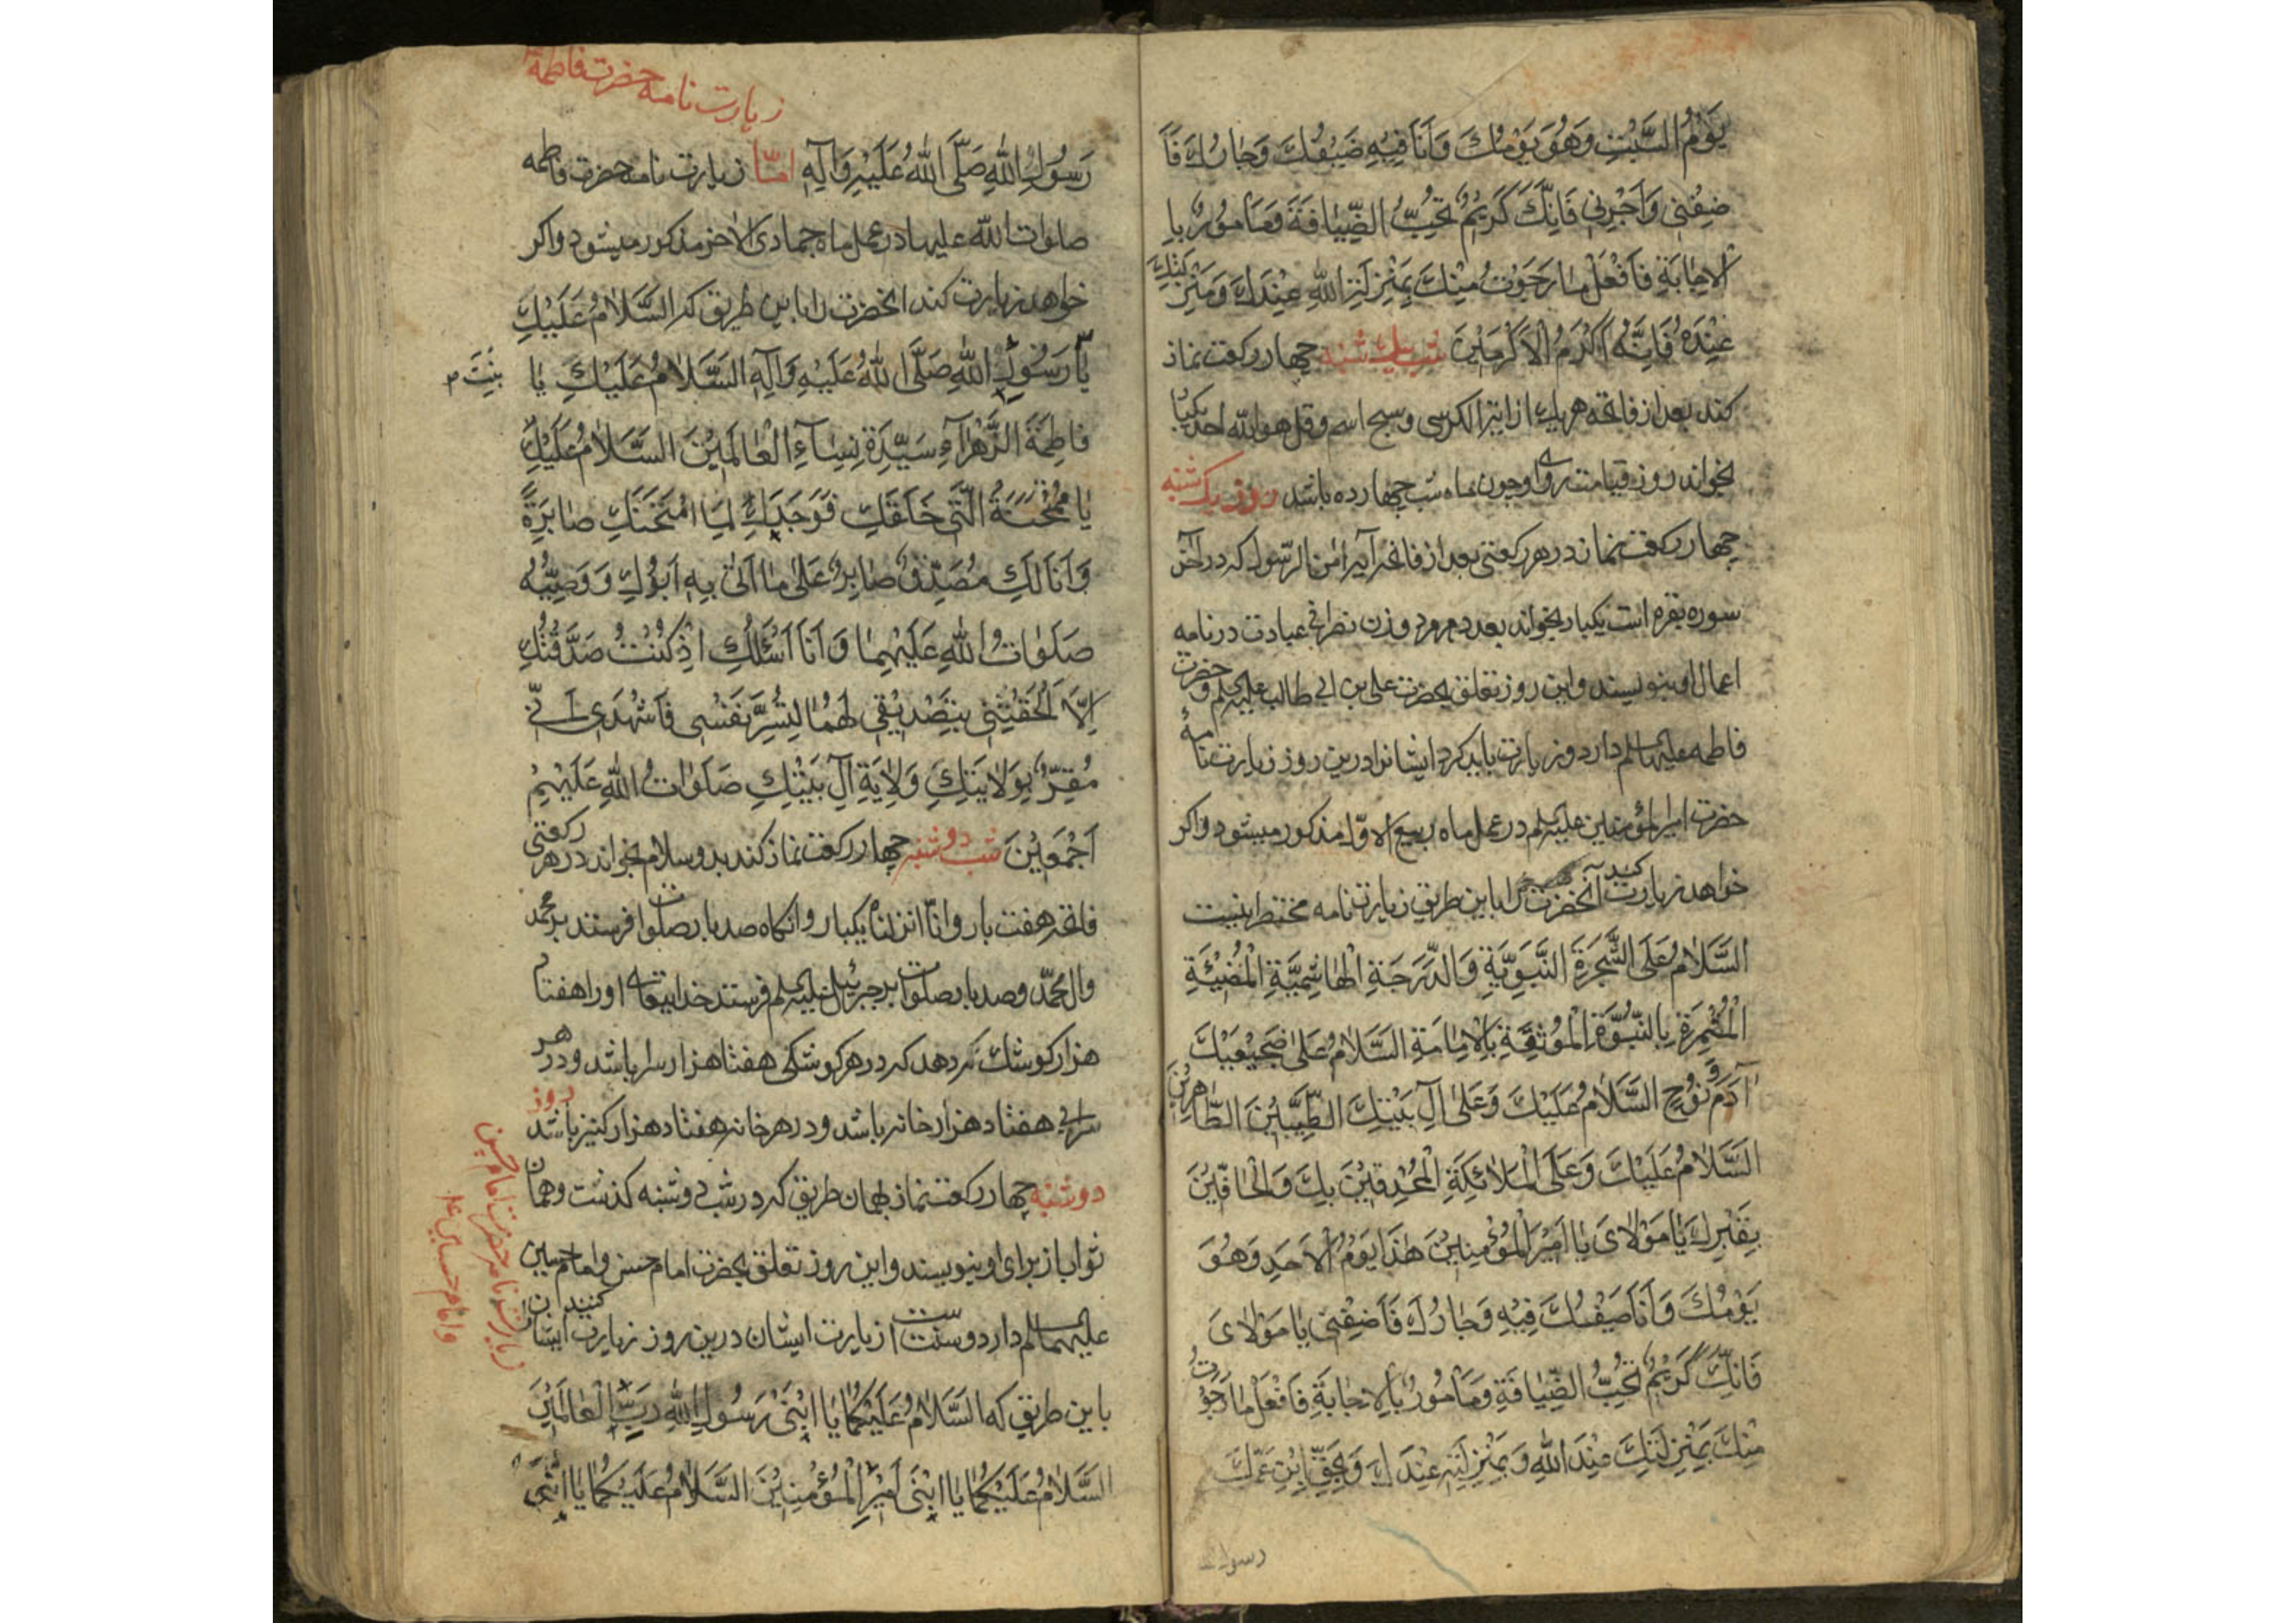 يَوْمُ السَّبْتِ وَهُوَ يَوْمُكَ وَاَنَا فِيهِ ضَيْفُكَ وَجٰارُكَ فَاَ
ضِفْنِى وَاَجِرْنِى فَاِنَّكَ كَرِيمٌ تُحِبُّ الضِّيٰافَةَ وَمَأمُورٌ بِا
لاِجٰابَةِ فَافْعَلْ مٰا رَجَوْتُ مِنْكَ بِمَنْزِلَةِ اللّٰهِ عِنْدَكَ وَمَنْزِلَتِكَ
عِنْدَهُ فَاِنَّهُ اَكْرَمُ الاَكْرَمِيْنَ شب يك شنبه چهار ركعت نماز
كند بعد از فاتحه هريك از اية الكرسى وسبح اسم وقل هو الله احد يكبا
بخواند روز قيامت روى او چون ماه شب چهارده باشد روز يك شنبه
چهار ركعت نماز در هر ركعتى بعد از فاتحه آيه امن الرّسول كه در آخر
سوره بقره است يكبار بخواند بعدد هر مرد و زن نصرانى عبادت در نامه
اعمال او بنويسند واين روز تعلق بحضرت على بن ابى طالب عليه السلم و حضرت
فاطمه عليها السلم دارد و زيارت بايد كرد ايشانرا درين روز زيارت نامهٔ
حضرت امير المؤمنين عليه السلم در عمل ماه ربيع الاوّل مذكور ميشود واكر
خواهد زيارت كند آنحضرت را باين طريق زيارت نامه مختصر اينست
السَّلٰامُ عَلَى الشَّجَرَةِ النَّبَوِيَّةِ وَالدَّرَجَةِ الْهٰاشِمِيَّةِ الْمُضِيْئَةِ
الْمُثْمِرَةِ بِالنُّبُوَّةِ الْمُونِقَةِ بِالْاِمٰامَةِ السَّلٰامُ عَلىٰ ضَجِيْعَيْكَ
آدَمَ وَنُوْحٍ السَّلٰامُ عَلَيْكَ وَعَلىٰ آلِ بَيْتِكَ الطَّيِّبِيْنَ الطّٰاهِرِيْنَ
السَّلٰامُ عَلَيْكَ وَعَلَى الْمَلٰائِكَةِ الْمُحْدِقِيْنَ بِكَ وَالْحٰافِّيْنَ
بِقَبْرِكَ يٰا مَوْلاٰىَ يٰا اَمِيْرَ الْمُؤْمِنِيْنَ هٰذَا يَوْمُ الْاَحَدِ وَهُوَ
يَوْمُكَ وَاَنَا ضَيْفُكَ فِيْهِ وَجٰارُكَ فَاَضِفْنِى يٰا مَوْلاٰىَ
فَاِنَّكَ كَرِيْمٌ تُحِبُّ الضِّيٰافَةِ وَمَأمُورٌ بِالاِجٰابَةِ فَافْعَلْ مٰا رَجَوْتُ
مِنْكَ بِمَنْزِلَتِكَ عِنْدَ اللّٰهِ وَبِمَنْزِلَتِهِ عِنْدَكَ وَبِحَقِّ ابْنِ عَمِّكَ
رسول
زيارت نامه حضرت فاطمة
رَسُوْلِ اللّٰهِ صَلَّى اللّٰهُ عَلَيْهِ وَآلِهِ امّا زيارت نامه حضرت فاطمه
صلوات الله عليها در عمل ماه جمادى الاخر مذكور ميشود واكر
خواهد زيارت كند انحضرت را باين طريق كه السَّلٰامُ عَلَيْكِ
يٰا رَسُوْلِ اللّٰهِ صَلَّى اللّٰهُ عَلَيْهِ وَآلِهِ السَّلٰامُ عَلَيْكِ يٰا
بِنْتَ
فٰاطِمَةَ الزَّهْرٰآءِ سَيِّدَةِ نِسٰآءِ الْعٰالَمِيْنَ السَّلٰامُ عَلَيْكِ
يٰا مُمْتَحَنَةُ الَّتِى خَلَقَكِ فَوَجَدَكِ لِمَا امْتَحَنَكِ صٰابِرَةً
وَاَنَا لَكِ مُصَدِّقٌ صٰابِرٌ عَلىٰ مٰا اَتىٰ بِهِ اَبُوْكِ وَوَصِيُّهُ
صَلَوٰاتُ اللّٰهِ عَلَيْهِمٰا وَاَنَا اَسْئَلُكِ اِذْ كُنْتُ صَدَّقْتُكِ
اِلَّا اَلْحَقْتِنِى بِتَصْدِيْقِى لَهُمٰا لِتُسَرَّ نَفْسِى فَاشْهَدِى اَنِّى
مُقِرٌّ بِوَلاٰيَتِكِ وَلاٰيَةِ آلِ بَيْتِكِ صَلَوٰاتُ اللّٰهِ عَلَيْهِمْ
اَجْمَعِيْنَ شب دوشنبه چهار ركعت نماز كند بدو سلام بخواند در هر ركعتى
فاتحه هفت بار وانّا انزلناه يكبار وانكاه صد بار صلوات فرستند بر محمد
وال محمّد وصد بار صلوات بر جبرئيل عليه السلم فرستد خدايتعالى اورا هفتاد
هزار كوشك بدهد كه در هر كوشكى هفتاد هزار سرا باشد و در هر
سرائى هفتاد هزار خانه باشد و در هر خانه هفتاد هزار كنيز باشد روز
دوشنبه چهار ركعت نماز بهمان طريق كه در شب دوشنبه كذشت وهمان
ثواب از براى او بنويسند واين روز تعلق بحضرت امام حسن وامام حسين
عليهما السلم دارد وسنت است زيارت ايشان درين روز زيارت ايشان كنند
باين طريق كه السَّلٰامُ عَلَيْكُمٰا يَا ابْنَىْ رَسُوْلِ اللّٰهِ رَبِّ الْعٰالَمِيْنَ
السَّلٰامُ عَلَيْكُمٰا يَا ابْنَىْ اَمِيْرِ الْمُؤْمِنِيْنَ السَّلٰامُ عَلَيْكُمٰا يَا ابْنَىْ
زيارت نامه حضرت امام حسن
وامام حسين ع